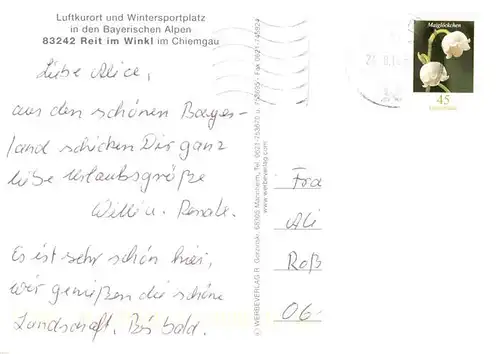 Luftkurort und Wintersportplatz
in den Bayerischen Alpen
83242 Reit im Winkl im Chiemgau
Liebe Alice,
aus den schönen Bayer-
land schicken Dir ganz
liebe Urlaubsgrüße
Willi u. Renate.
Es ist sehr schön hier,
wir genießen die schöne
Landschaft. Bis bald.
© WERBEVERLAG R. Gorzinski, 68305 Mannheim, Tel. 0621-753670 u.
www.werbeverlag.com
Maiglöckchen
45
Fra
Ali
Roß
06-